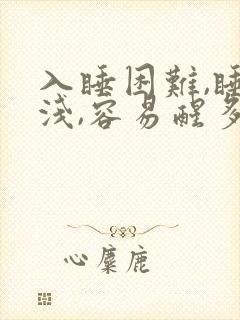 入睡困難,睡
淺,容易醒多
心麋鹿